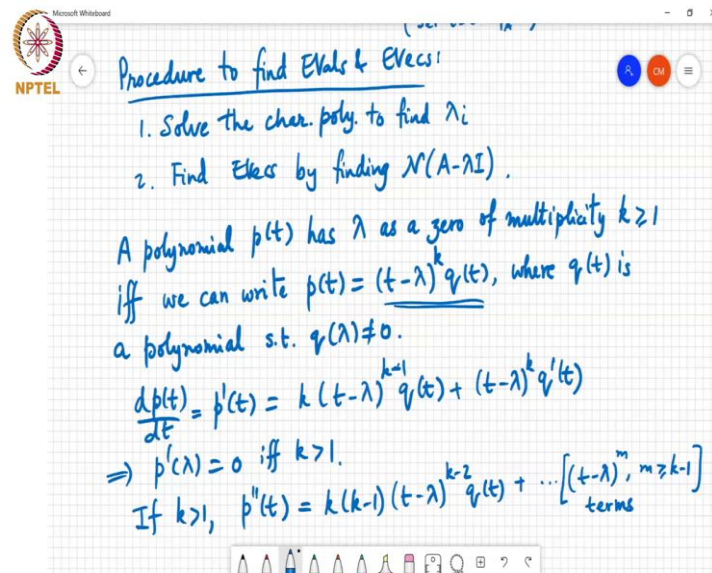 Microsoft Whiteboard
NPTEL
CM
Procedure to find EVals & EVecs:
1. Solve the char. poly. to find λi
2. Find EVecs by finding N(A-λI).
A polynomial p(t) has λ as a zero of multiplicity k ≥ 1
iff we can write p(t) = (t-λ)^k q(t), where q(t) is
a polynomial s.t. q(λ) ≠ 0.
dp(t)/dt = p'(t) = k(t-λ)^{k-1} q(t) + (t-λ)^k q'(t)
⇒ p'(λ) = 0 iff k>1.
If k>1, p''(t) = k(k-1)(t-λ)^{k-2} q(t) + ... [(t-λ)^m, m ≥ k-1]
terms